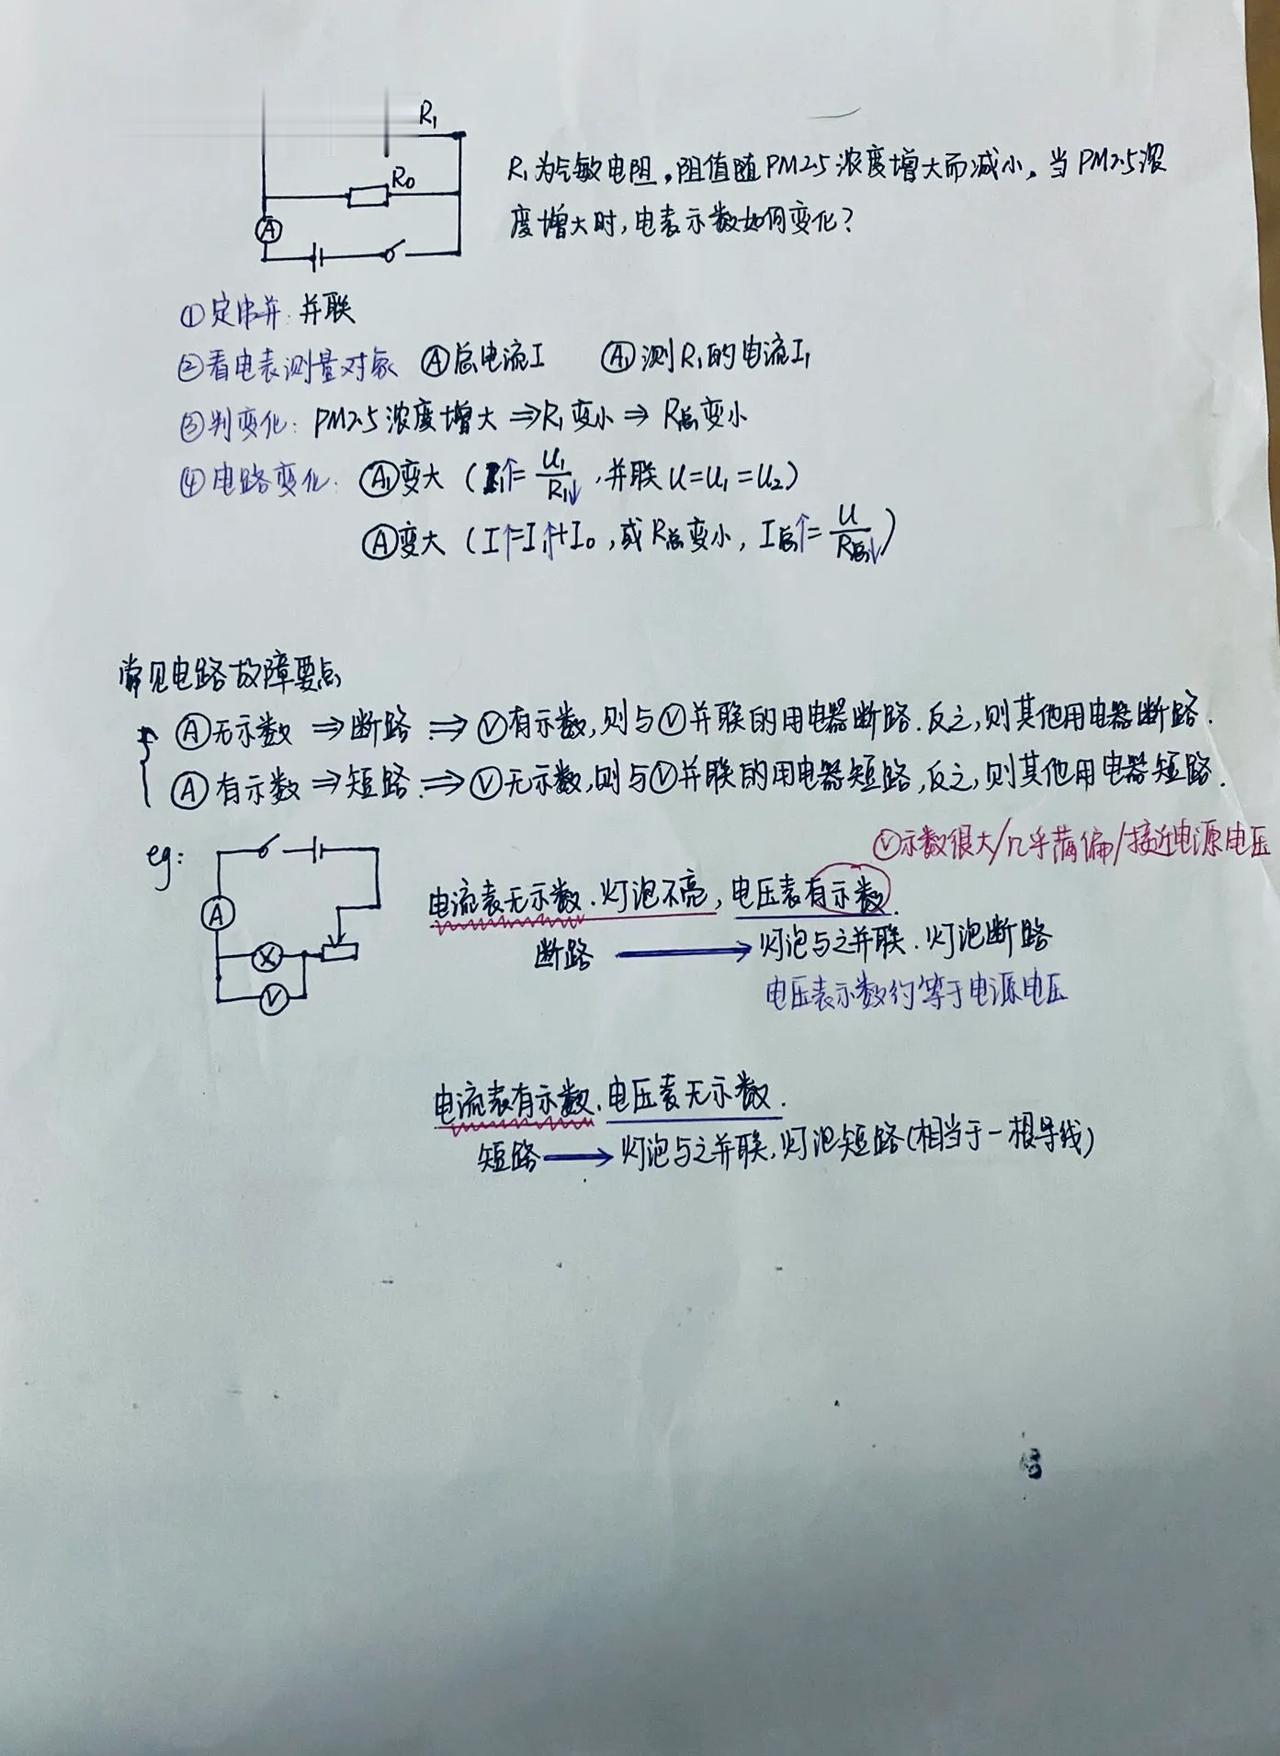 R₁
R₀
A
R₁为气敏电阻,阻值随PM2.5浓度增大而减小。当PM2.5浓
度增大时,电表示数如何变化?
①定串并:并联
②看电表测量对象 Ⓐ总电流I A₁测R₁的电流I₁
③判变化:PM2.5浓度增大⇒R₁变小⇒R总变小
④电路变化:A₁变大(I₁↑=U₁/R₁↓,并联U=U₁=U₂)
Ⓐ变大(I↑=I₁↑+I₀,或R总变小,I总↑=U/R总↓)
常见电路故障要点
Ⓐ无示数⇒断路⇒Ⓥ有示数,则与Ⓥ并联的用电器断路.反之,则其他用电器断路.
Ⓐ有示数⇒短路⇒Ⓥ无示数,则与Ⓥ并联的用电器短路,反之,则其他用电器短路.
Ⓥ示数很大/几乎满偏/接近电源电压
eg:
A
V
电流表无示数.灯泡不亮,电压表有示数.
断路→灯泡与之并联.灯泡断路
电压表示数约等于电源电压
电流表有示数,电压表无示数.
短路→灯泡与之并联,灯泡短路(相当于一根导线)